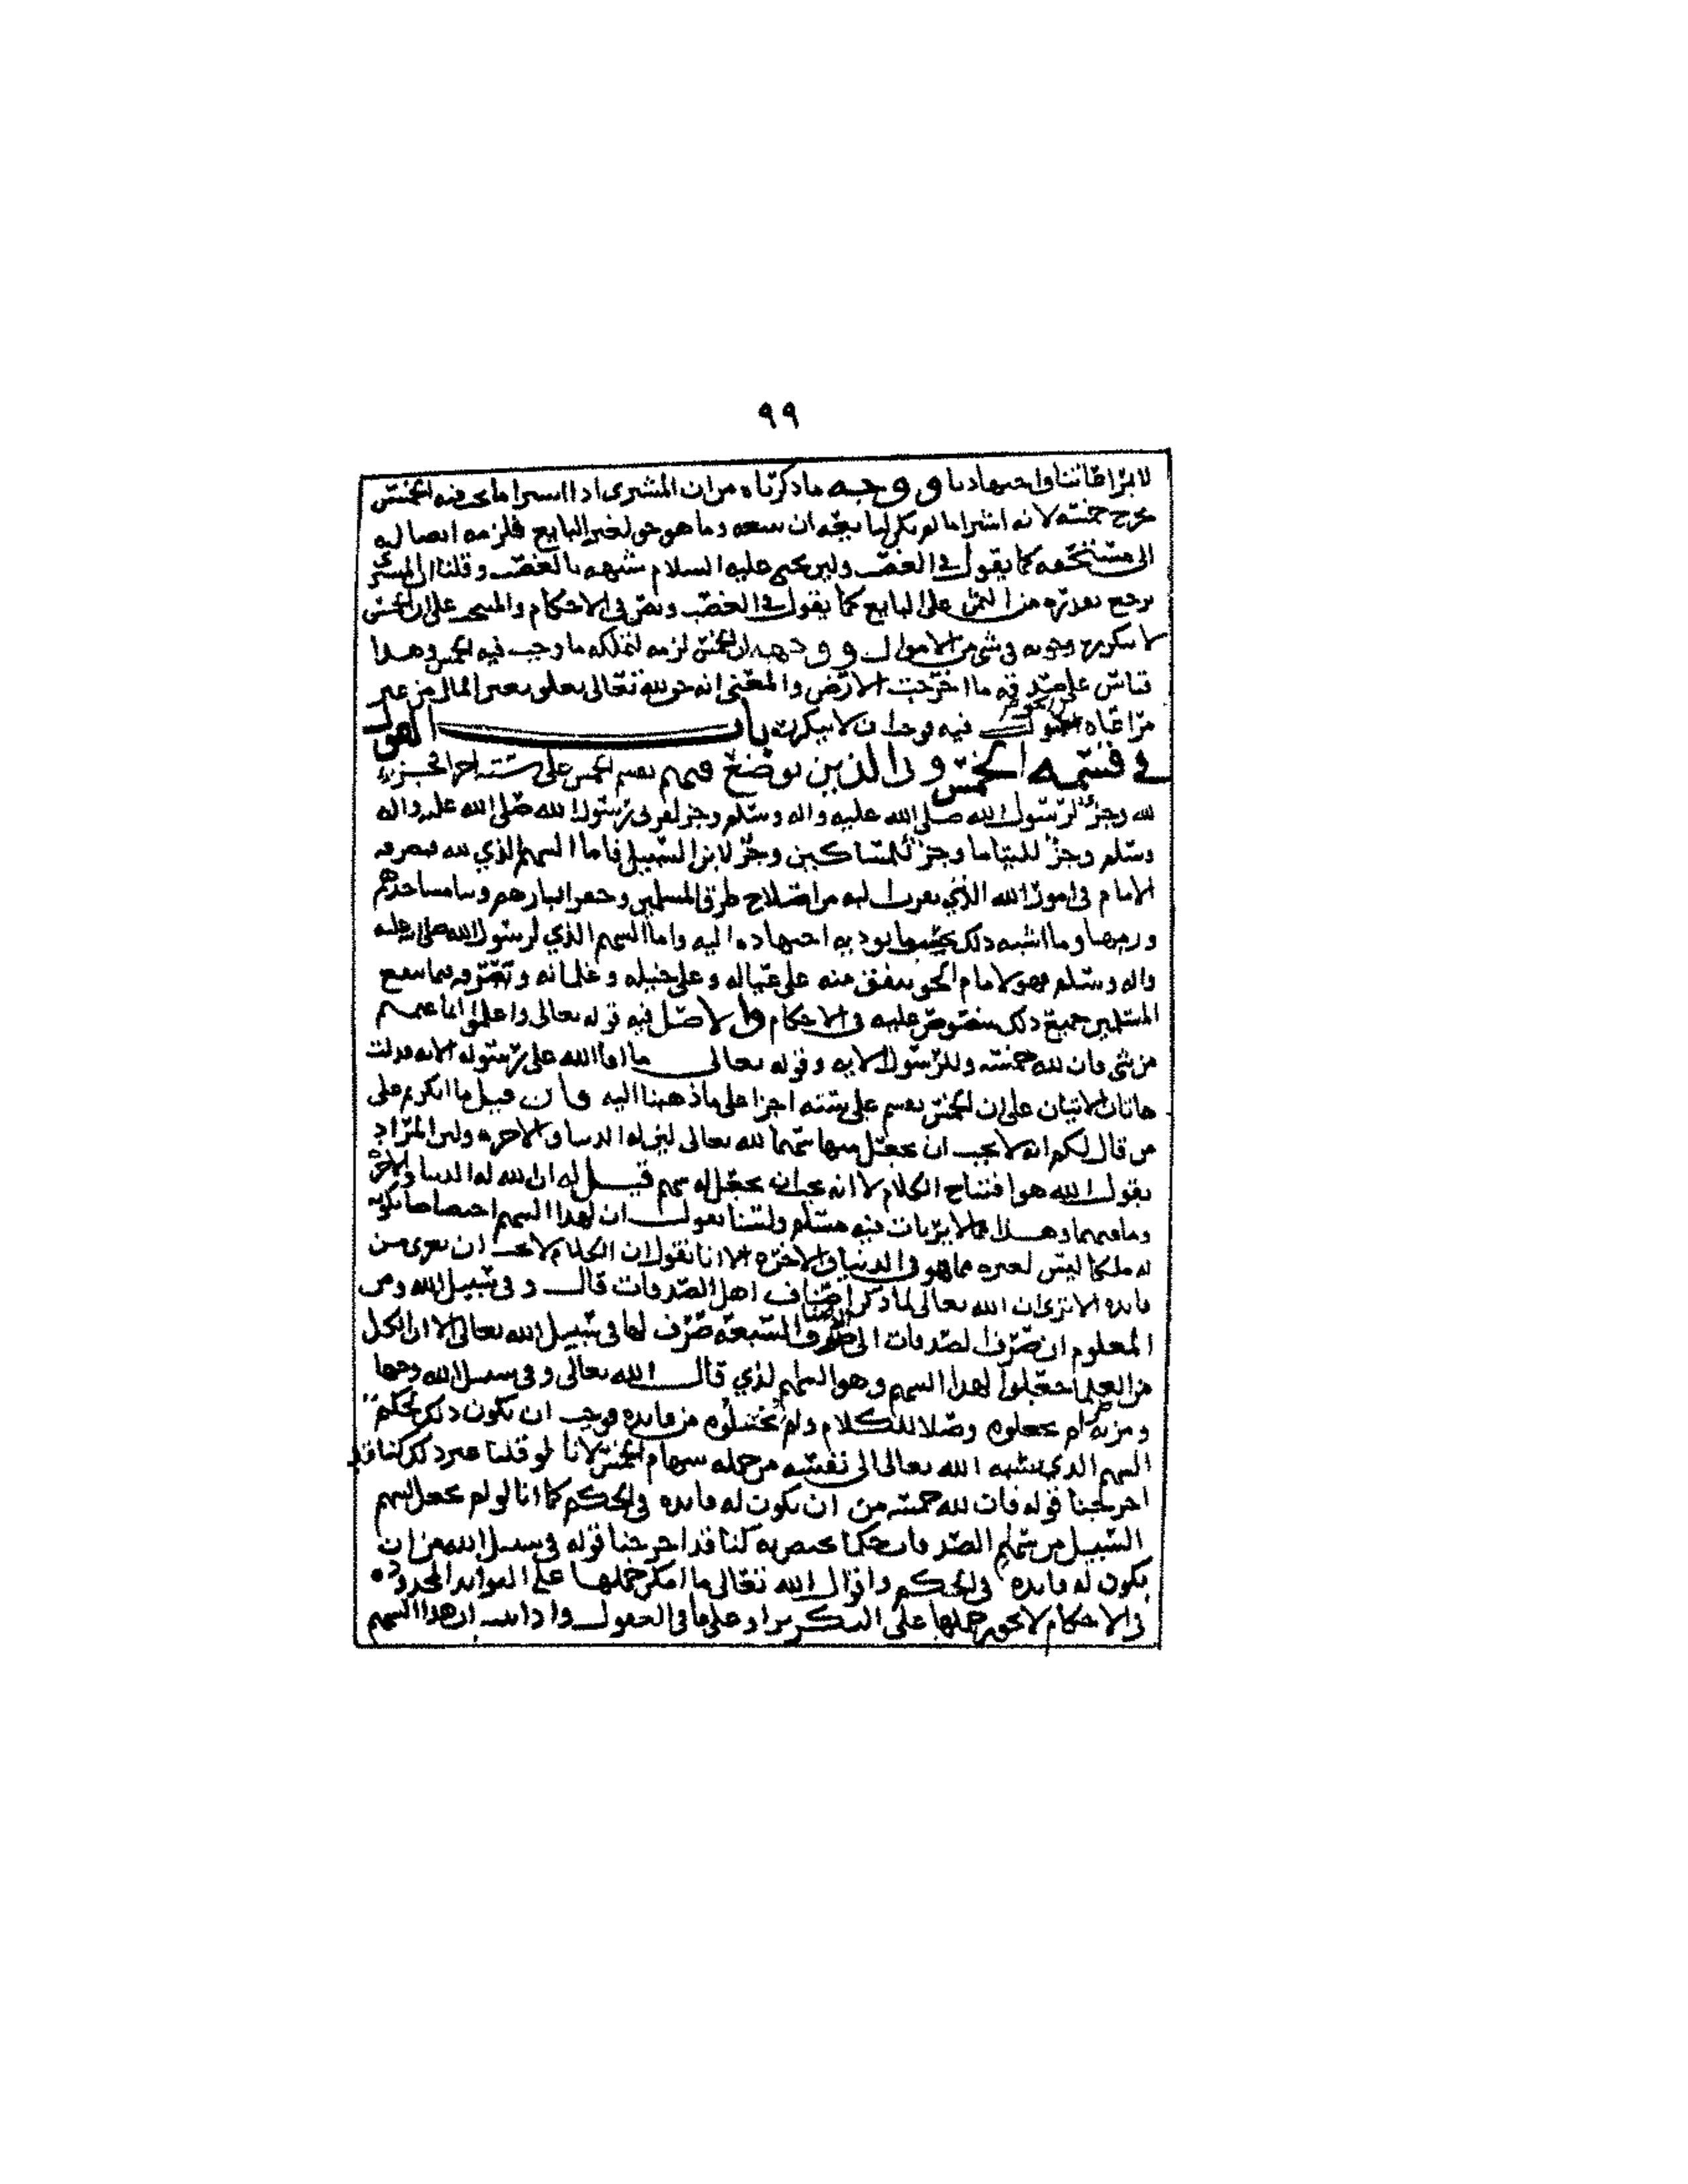 ٩٩
ووجه ما ذكرناه من ان المشترى اذا اشترا ما يجب فيه الخمس
خرج خمسه لانه اشترا ما لم يكن لبايعه ان يبيعه وما هو حق لغير البايع فلزمه ايصاله
الى مستحقه كما يقول في الغصب وليحيى عليه السلام شبهه بالغصب وقلنا ان المشتري
يرجع بقدره من الثمن على البايع كما يقول في الغصب ونص في الاحكام والمنتخب على ان الخمس
لا يتكرر وجوبه في شي من الاموال ووجهه ان الخمس لزمه لتملكه ما وجب فيه الخمس وهذا
قياس على ما اخرجت الارض والمعنى انه حق لله تعالى يتعلق بعين المال من غير
مراعاة الحول فيه فوجب ان لا يتكرر باب القول
في قسمة الخمس وفى الذين يوضع فيهم يقسم الخمس على ستة اجزا فجزء
لله وجزء لرسول الله صلى الله عليه واله وسلم وجزء لقربى رسول الله صلى الله عليه واله
وسلم وجزء لليتاما وجزء للمساكين وجزء لابن السبيل فاما السهم الذي لله فيصرفه
الامام في امور الله الذي يقرب اليه من اصلاح طرق المسلمين وحفر ابيارهم وبنا مساجدهم
ورمها وما اشبه ذلك بحسب ما يوديه اجتهاده اليه واما السهم الذي لرسول الله صلى الله عليه
واله وسلم فهو لامام الحق ينفق منه على عياله وعلى خيله وغلمانه وتصرفه فيما ينفع
المسلمين جميع ذلك منصوص عليه في الاحكام والاصل فيه قوله تعالى واعلموا انما غنمتم
من شى فان لله خمسه وللرسول الايه وقوله تعالى ما افا الله على رسوله الايه فدلت
هاتان الايتان على ان الخمس يقسم على ستة اجزا على ما ذهبنا اليه فان قيل ما انكرتم على
من قال لكم انه لا يجب ان يجعل سهما لله تعالى لان له الدنيا والاخره وان المراد
بقول الله هو افتتاح الكلام لا انه يجب ان يجعل له سهم قيل له ان الله له الدنيا والاخرة
وما فيهما وهذا مما لا يرتاب فيه مسلم ولسنا نقول ان لهذا السهم اختصاصا بكونه
له ملكا ليس لغيره مما هو في الدنيا والاخره الا انا نقول ان الكلام لا يجب ان يعرى من
فايده الا ترى ان الله تعالى لما ذكر اصناف اهل الصدقات قال وفى سبيل الله ومن
المعلوم ان صرف الصدقات الى الاصناف السبعه صرف لها في سبيل الله تعالى الا ان الكل
من العلما جعلوا لهذا السهم وهو السهم الذي قال الله تعالى وفى سبيل الله وجها
ومزية ولم يجعلوه وصلا للكلام ولم يخلوه من فايده فوجب ان يكون ذلك حكم
السهم الذي نسبه الله تعالى الى نفسه من جمله سهام الخمس لانا لو قلنا غير ذلك كنا قد
اخرجنا قوله فان لله خمسه من ان يكون له فايده في الحكم كما انا لو لم نجعل لسهم
السبيل من سهام الصدقات حكما يختص به كنا قد اخرجنا قوله في سبيل الله من ان
يكون له فايده في الحكم واقوال الله تعالى ما امكن حملها على الفوايد المحدودة
في الاحكام لا يجوز حملها على التكرير او على ما في العقول واذا ثبت ان هذا السهم